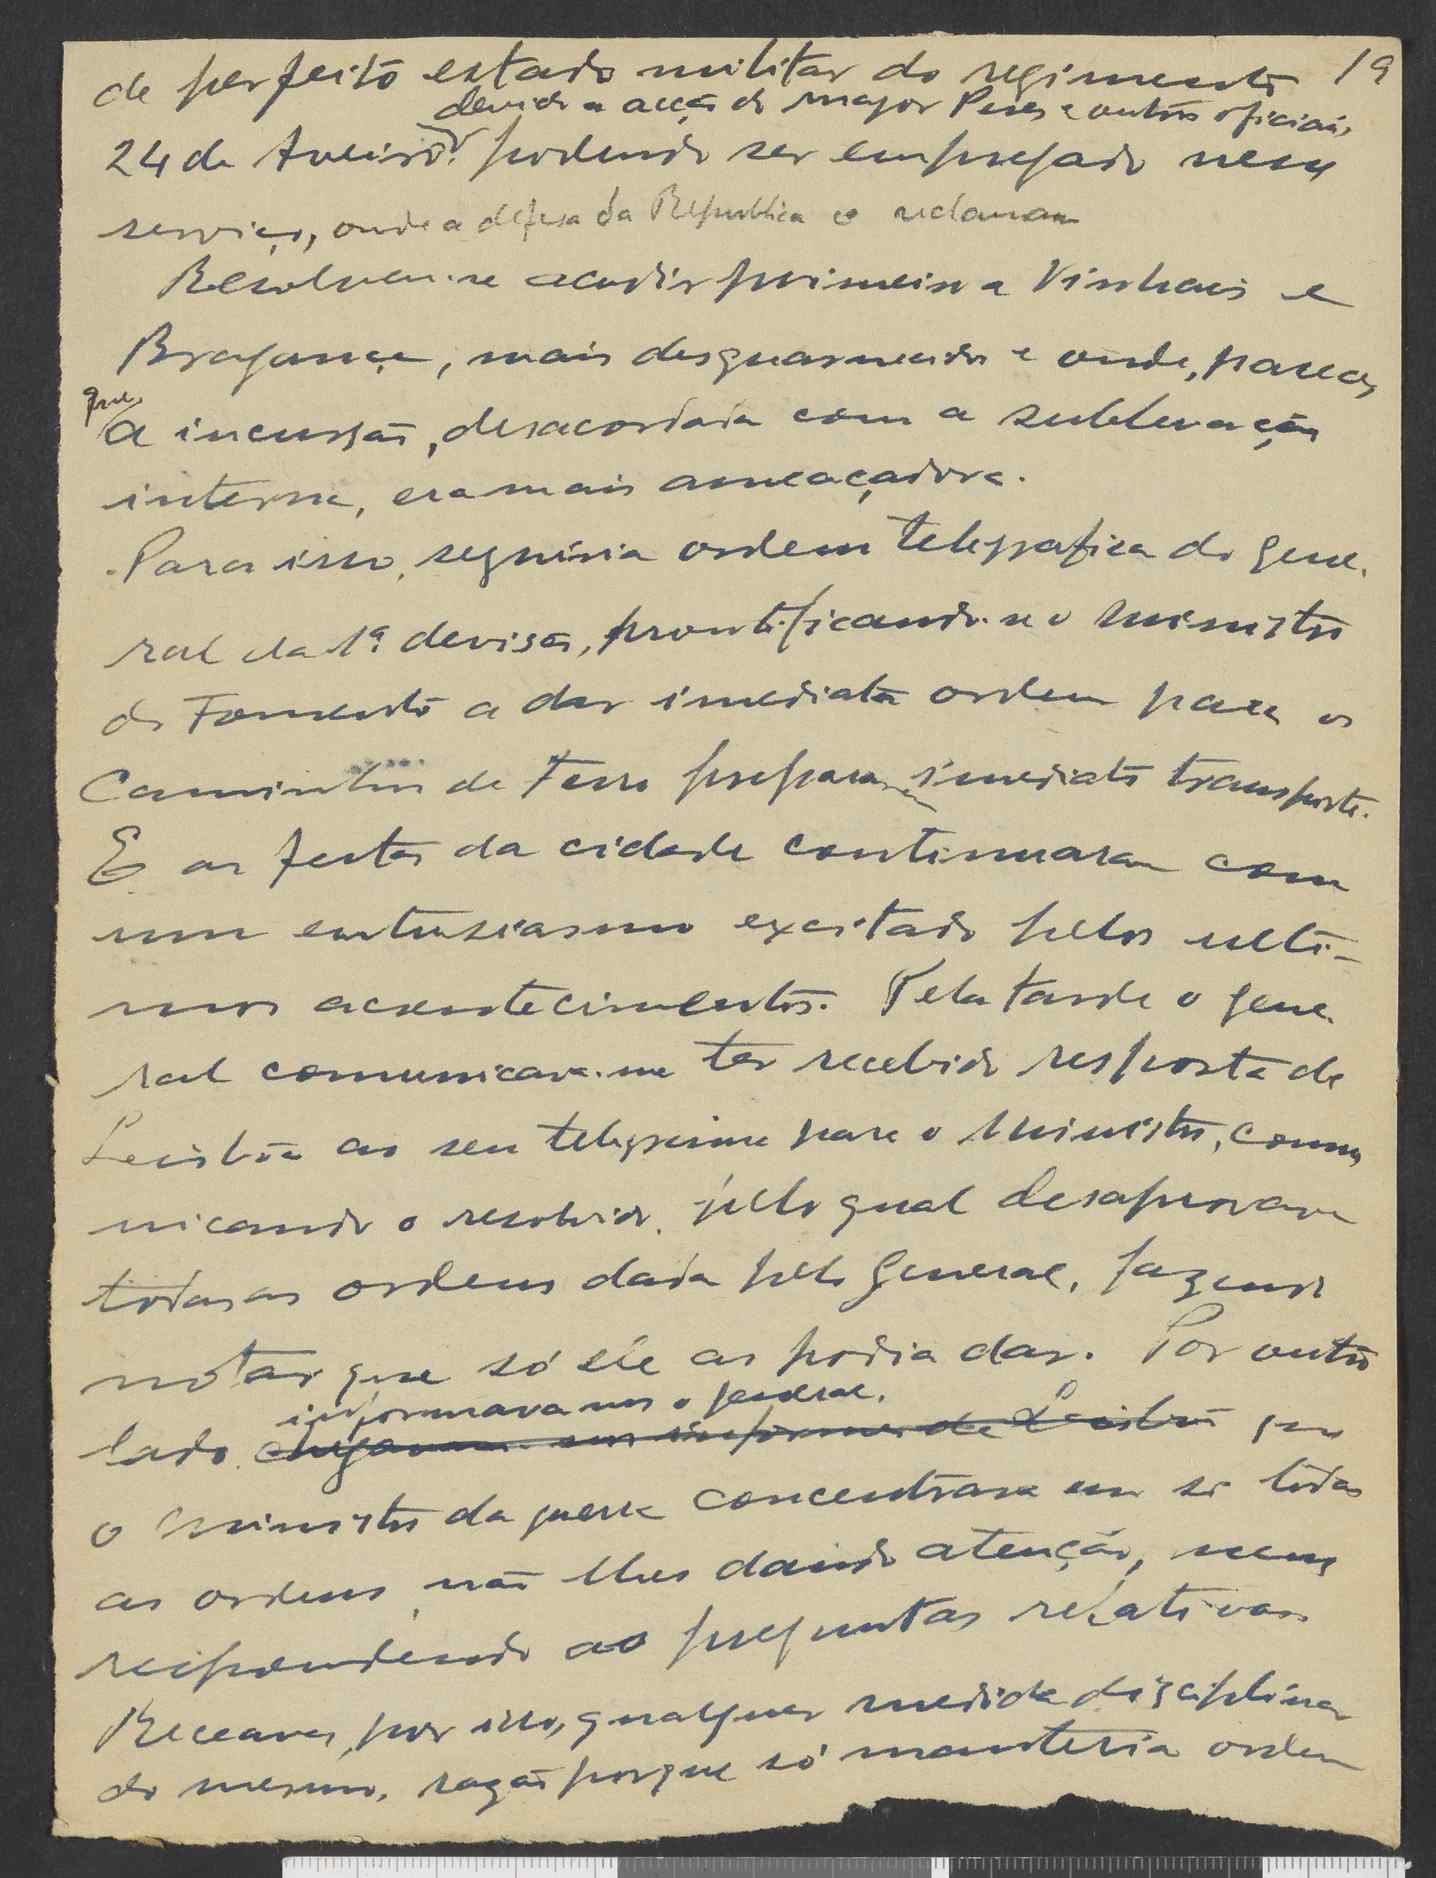 19
de perfeito estado militar do regimento
devido a acção do major Peres e outros oficiais,
24 de Aveiro, podendo ser empregado nesse
serviço, onde a defesa da Republica o reclamam
Resolveu-se acudir primeiro a Vinhais e
Bragança, mais desguarnecidos e onde, parecia
que
a incursão, desacordada com a sublevação
interna, era mais ameaçadora.
Para isso, seguiria ordem telegrafica do gene-
ral da 1ª devisão, prontificando-se o ministro
do Fomento a dar imediata ordem para os
Caminhos de Ferro prepararem imediato transporte.
E as festas da cidade continuaram com
um entusiasmo excitado pelos ulti-
mos acontecimentos. Pela tarde o gene-
ral comunicava-me ter recebido resposta de
Lesibôa ao seu telegrama para o ministro, comu
nicando o resolvido, pelo qual desaprovava
todas as ordens dada pelo General, fazendo
notar que só ele as podia dar. Por outro
informava-nos o general,
lado que
o ministro da guerra concentrara em si todas
as ordens, não lhes dando atenção, nem
respondendo ao preguntas relativas
Receava, por isso, qualquer medida disciplinar
do mesmo, razão porque só manteria ordem